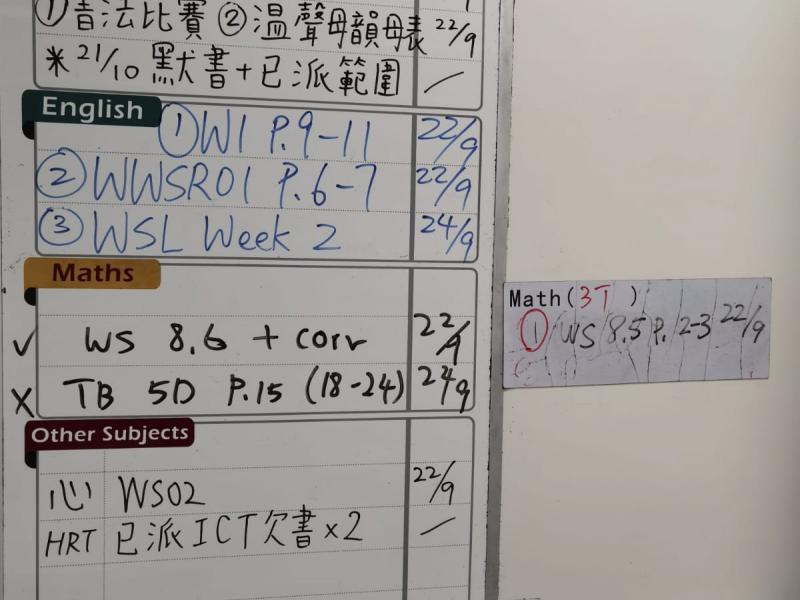 ①音法比賽 ②溫聲母韻母表 22/9
* 21/10 默書+已派範圍 /
English
① W1 P.9-11 22/9
② WWSR01 P.6-7 22/9
③ WSL Week 2 24/9
Maths
✓ WS 8.6 + corr 22/9
X TB 5D P.15 (18-24) 24/9
Other Subjects
心 WS02 22/9
HRT 已派ICT欠書x2 /
Math(3T)
① WS 8.5 P. 2-3 22/9